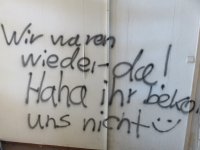 Wir waren
wieder da!
Haha ihr beko
uns nicht